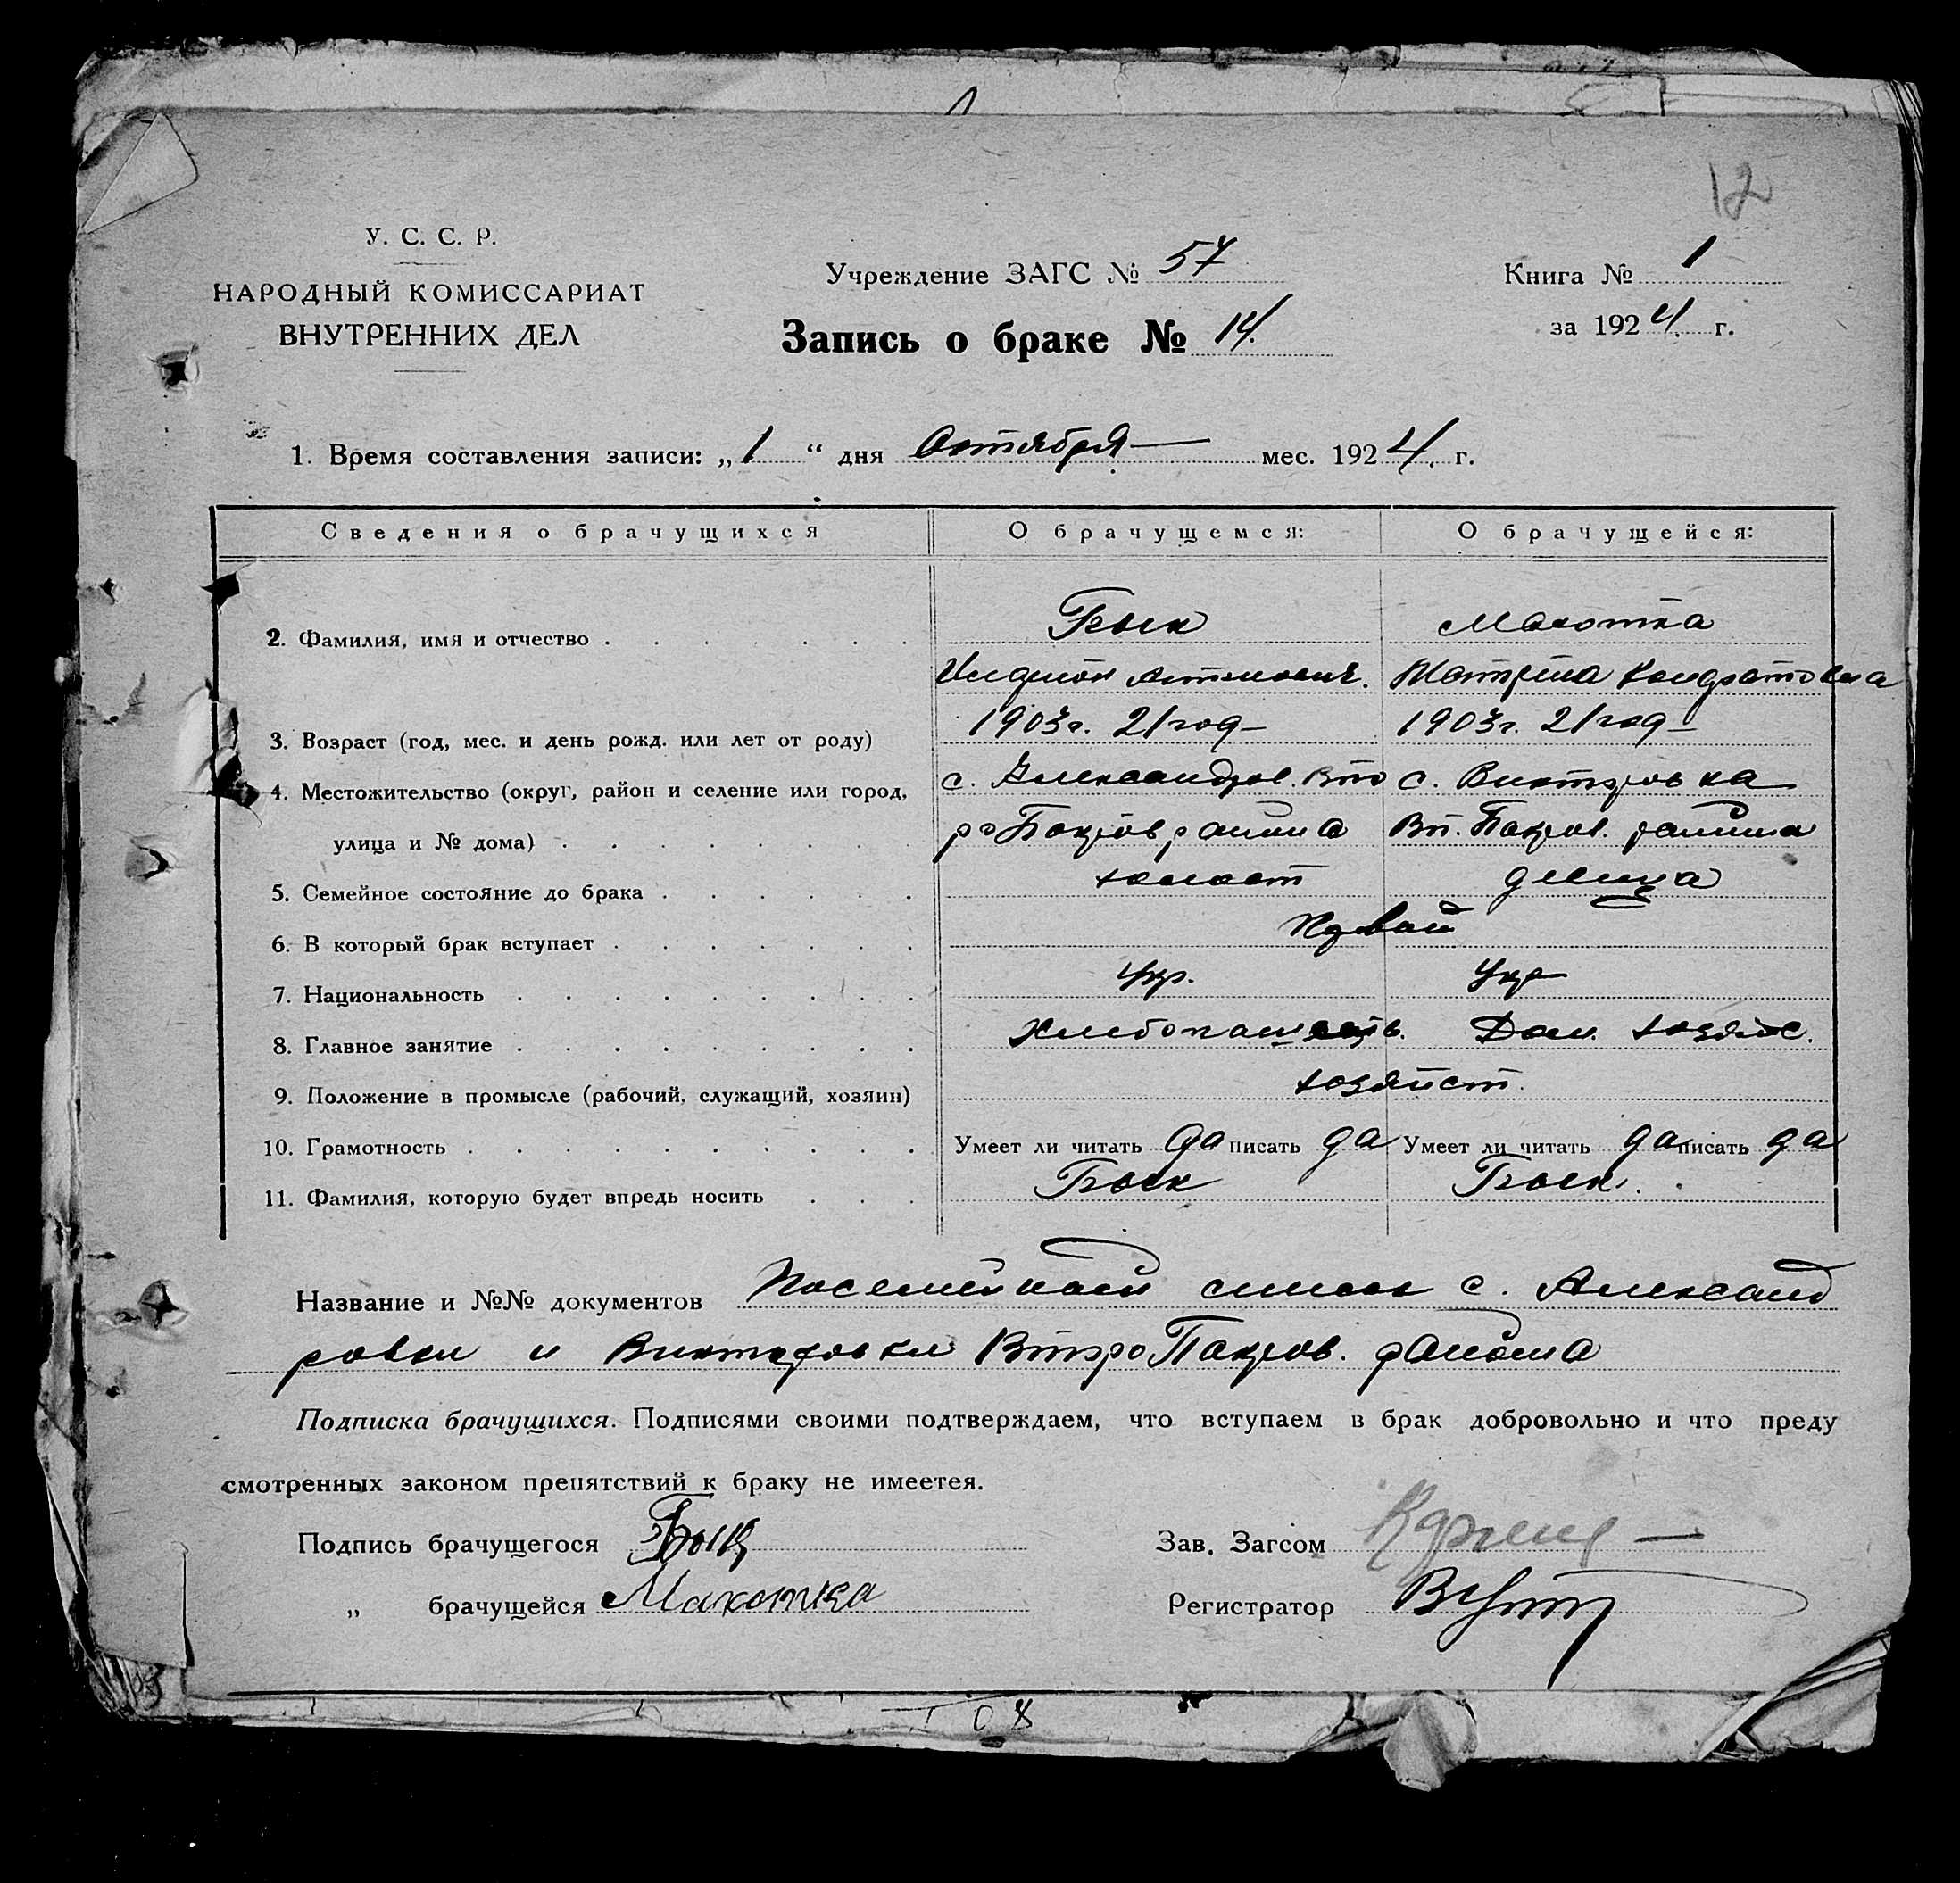 12
У. С. С. Р.
НАРОДНЫЙ КОМИССАРИАТ
ВНУТРЕННИХ ДЕЛ
Учреждение ЗАГС № 57
Книга № 1
Запись о браке № 14.
за 1924 г.
1. Время составления записи: „ 1 “ дня Октября мес. 1924. г.
Сведения о брачущихся О брачущемся: О брачущейся:
2. Фамилия, имя и отчество Махотка
Матрена Кондратовна
3. Возраст (год, мес. и день рожд. или лет от роду) 1903г. 21 год 1903г. 21 год
4. Местожительство (округ, район и селение или город, с. Александров. Вто с. Викторовка
улица и № дома) ро Покров района Вт. Покров. района
5. Семейное состояние до брака холост девица
6. В который брак вступает Первый
7. Национальность Укр. Укр
8. Главное занятие Хлебопашеств. Дом. хозяйс.
9. Положение в промысле (рабочий, служащий, хозяин) хозяйст.
10. Грамотность Умеет ли читать да писать да Умеет ли читать да писать да
11. Фамилия, которую будет впредь носить
Название и №№ документов Посемейный список с. Александ
ровки и Викторовки Второ Покров. района
Подписка брачущихся. Подписями своими подтверждаем, что вступаем в брак добровольно и что преду
смотренных законом препятствий к браку не имеетея.
Подпись брачущегося
Зав. Загсом
„ брачущейся Махотка
Регистратор
08